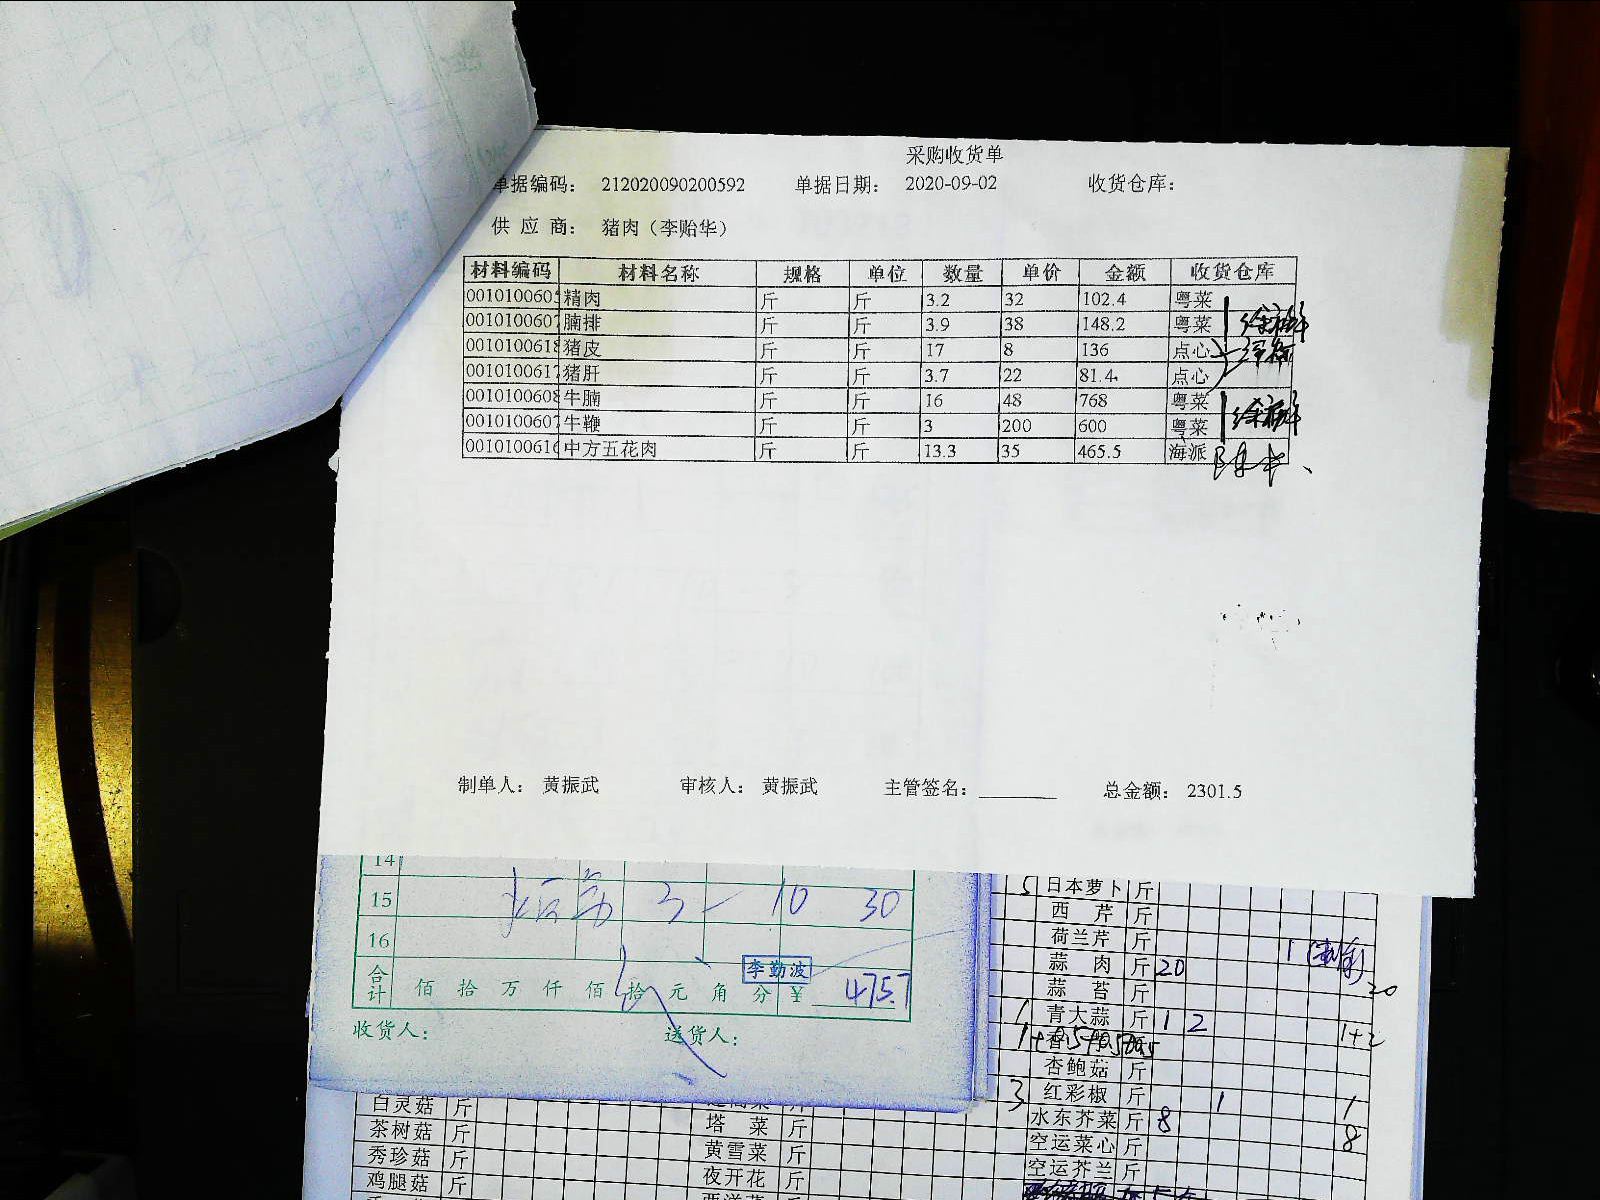 采购收货单
单据编码： 212020090200592 单据日期： 2020-09-02 收货仓库：
供 应 商： 猪肉（李贻华）
材料编码 材料名称 规格 单位 数量 单价 金额 收货仓库
0010100605 精肉 斤 斤 3.2 32 102.4 粤菜
0010100607 腩排 斤 斤 3.9 38 148.2 粤菜
0010100618 猪皮 斤 斤 17 8 136 点心
0010100617 猪肝 斤 斤 3.7 22 81.4 点心
0010100608 牛腩 斤 斤 16 48 768 粤菜
0010100607 牛鞭 斤 斤 3 200 600 粤菜
0010100616 中方五花肉 斤 斤 13.3 35 465.5 海派
制单人： 黄振武 审核人： 黄振武 主管签名： 总金额： 2301.5
14
15 3 10 30
16
合计 佰 拾 万 仟 佰 拾 元 角 分 ¥ 475.7
李勤波
收货人： 送货人：
5 日本萝卜 斤
西 芹 斤
荷兰芹 斤
蒜 肉 斤 20 20
蒜 苔 斤
1 青大蒜 斤 1 2 1+2
杏鲍菇 斤
3 红彩椒 斤 1 1
水东芥菜 斤 8 8
空运菜心 斤
空运芥兰 斤
白灵菇 斤
茶树菇 斤 塔 菜 斤
秀珍菇 斤 黄雪菜 斤
鸡腿菇 斤 夜开花 斤